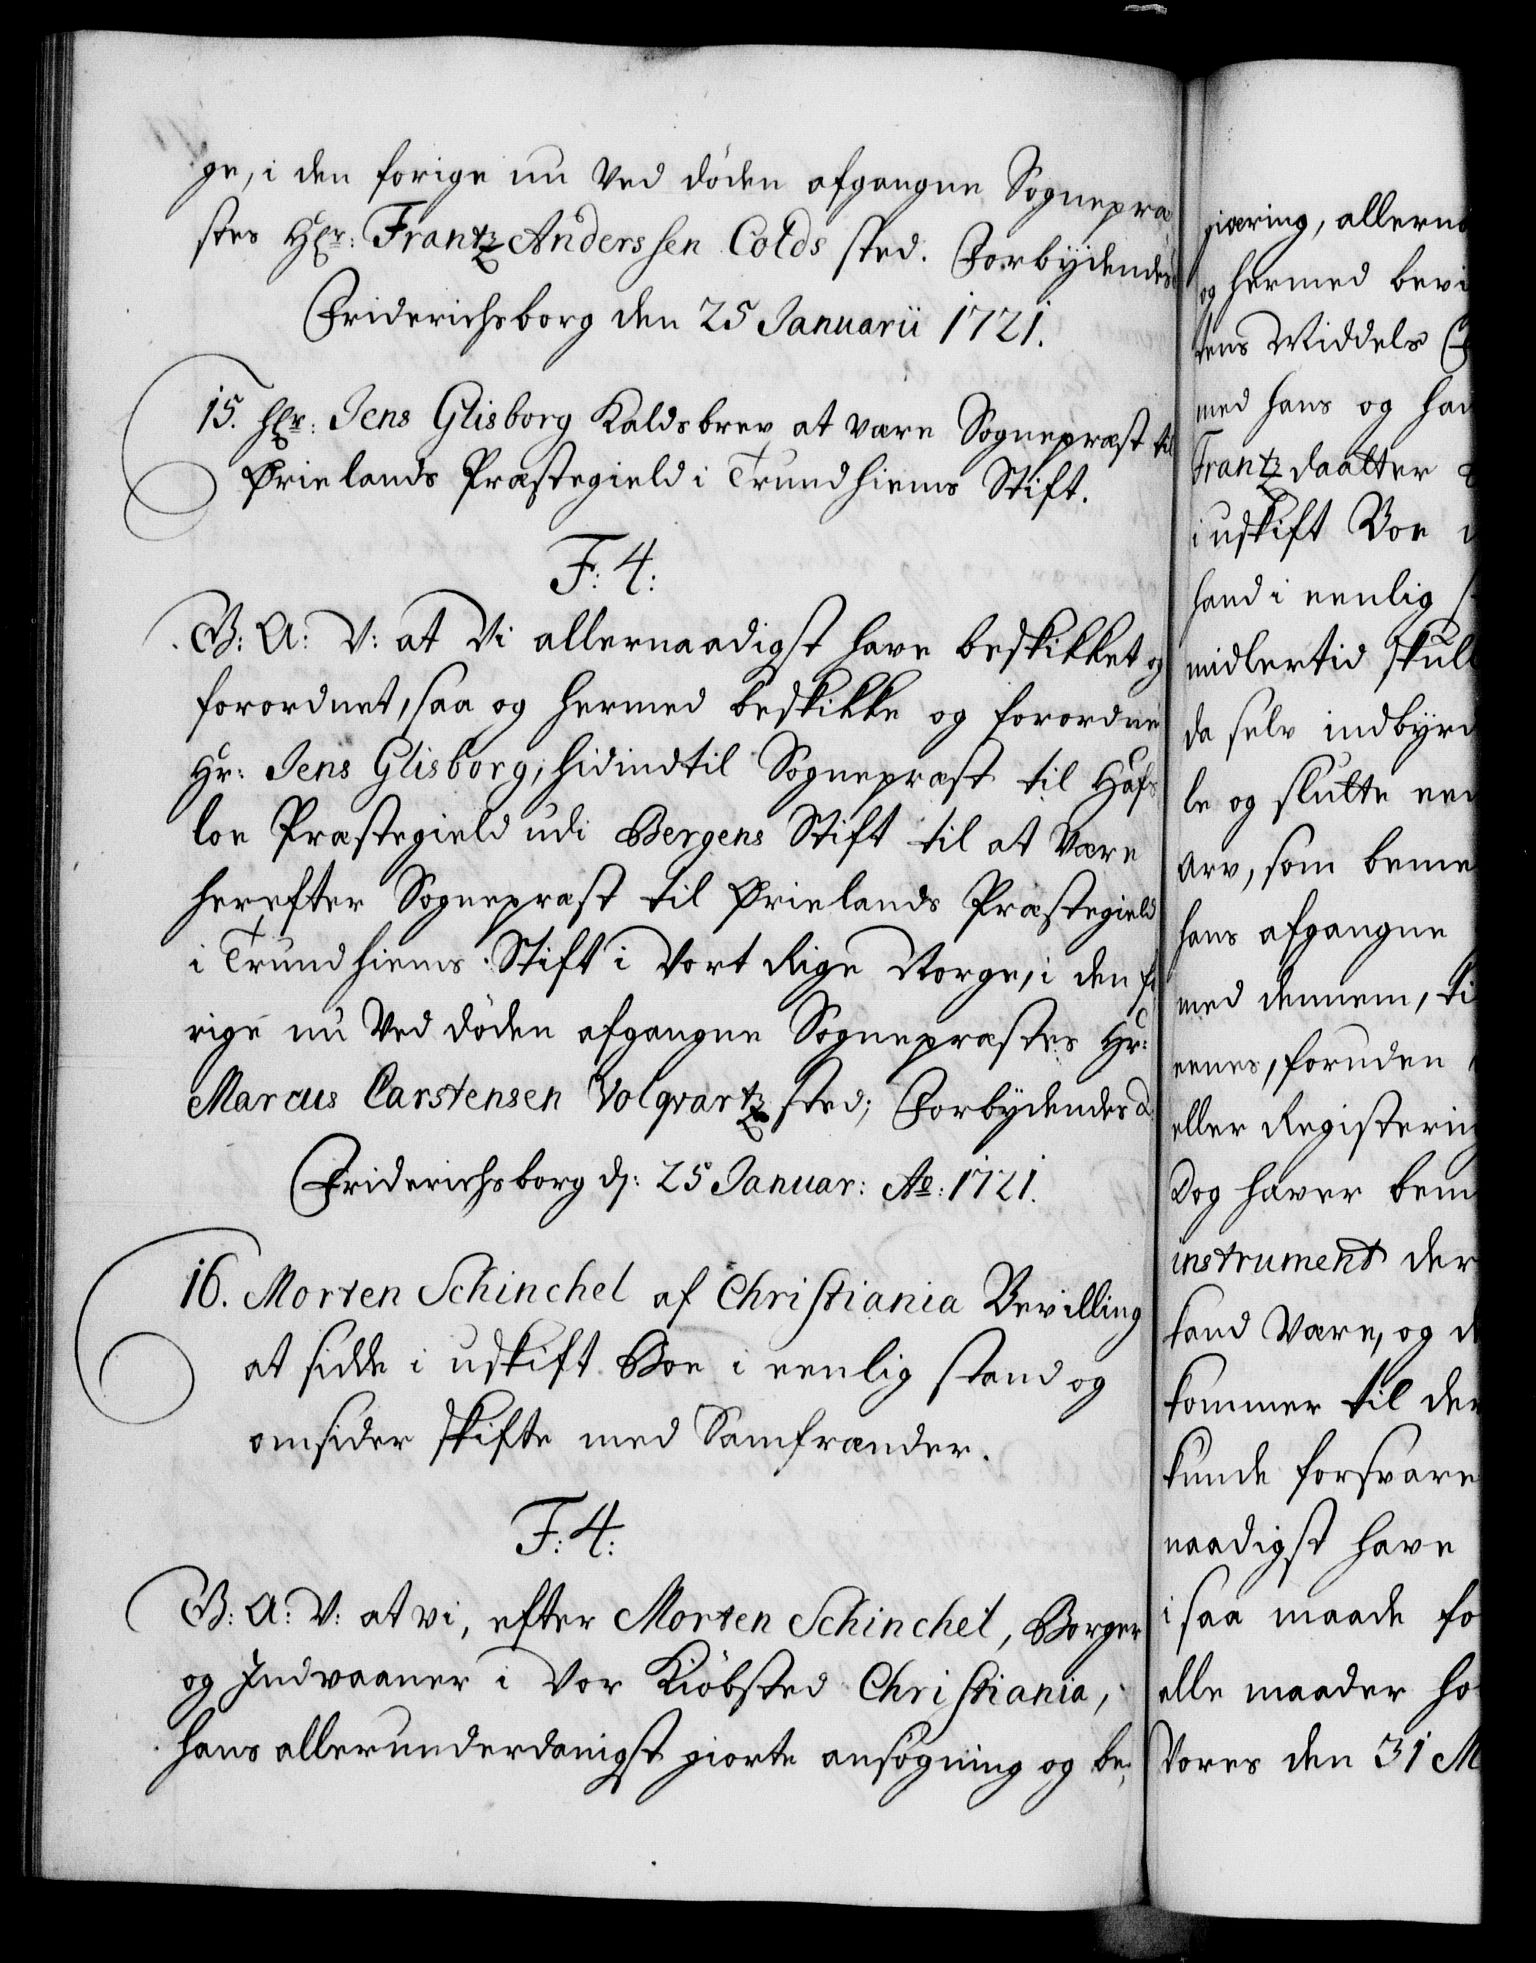 ge, i den forige nu Ved döden afgangne Sognepræ
stes Hr: Frantz Anderssen Colds sted. Forbydendes
Friderichsborg den 25 Januarii 1721.
15. Hr: Jens Glisborg Kaldsbrev at være Sognepræst til
Ørielands Præstegield i Trundhiems Stift.
F: 4:
G: A: V: at Vi allernaadigst have beskikket og
forordnet, saa og hermed beskikke og forordne
Hr: Jens Glisborg, hidindtil Sognepræst til Hafs
loe Præstegield udi Bergens Stift til at Være
herefter Sognepræst til Ørielands Præstegield
i Trundhiems Stift i Vort Rige Norge, i den fo
rige nu Ved döden afgangne Sognepræstes Hr:
Marcus Carstensen Volqvartz sted; Forbydendes &
Friderichsborg d: 25 Januar: Ao: 1721.
16. Morten Schinchel af Christiania Bevilling
at sidde i uskift Boe i eenlig stand og
omsider skifte med Samfrænder.
F: 4:
G: A: V: at vi, efter Morten Schinchel, Borger
og Indvaaner i Vor Kiöbsted Christiania,
hans allerunderdanigst giorte ansögning og be,
giæring, allerna
og hermed bevi
tens Middels
med hans og han
Frantz daatter
i uskift Boe
hand i eenlig
midlertid skull
da selv indbyrd
le og slutte
arv, som beme
hans afgangne
med dennem, ti
eenes, foruden
eller Registering
Dog haver bem
instrument der
kand Være, og d
kommer til der
kunde forsvare
naadigst have
i saa maade fo
alle maader ho
Vores den 31 M